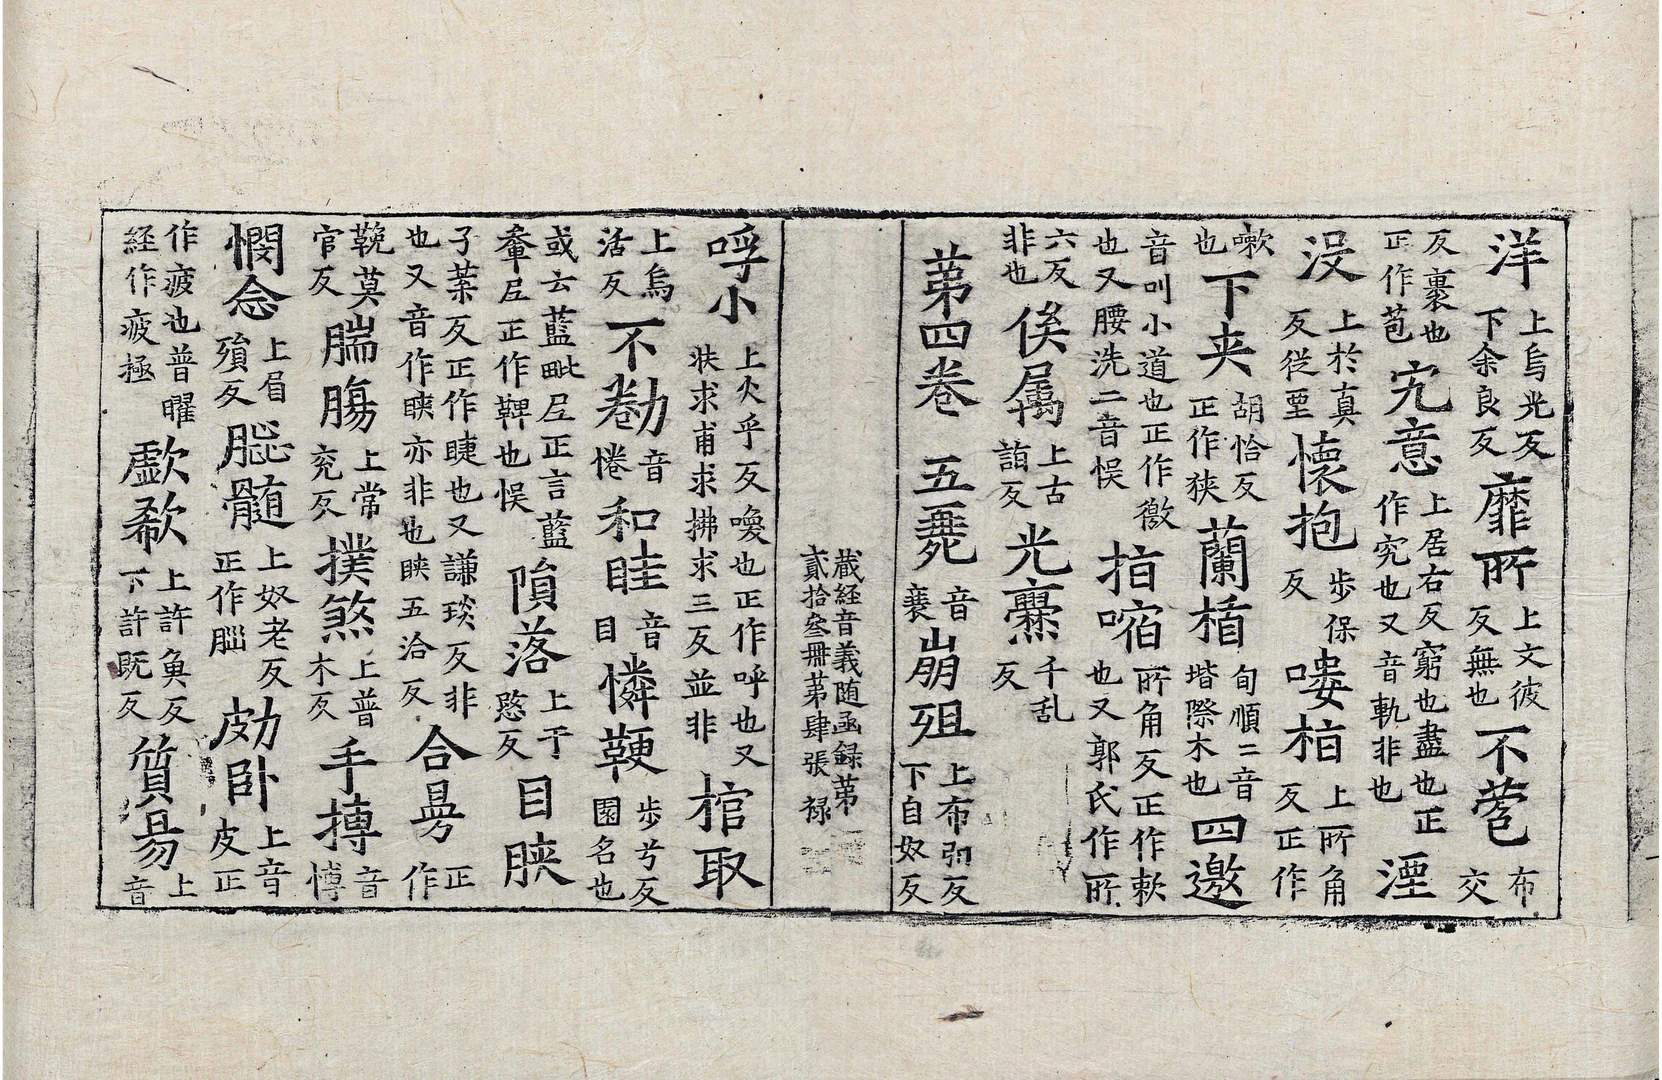 洋上烏光反下余良反靡所上文彼反無也不菢布交
反裹也正作苞宄意上居右反窮也盡也正作究也又音軌非也湮
没上於真反從垔懷抱步保反嘍桰上所角反正作
嗽也下夹胡恰反正作狹蘭楯旬順二音堦際木也四邀
音叫小道也正作徼也又腰洗二音悮㧽㗩所角反正作欶也又郭氏作所
六反非也俟属上古詣反光爨千乱反
苐四卷 五㲉音蕤崩殂上布弘反下自奴反
蔵經音義随函録苐
貳拾叄冊苐肆張 禄
哷小上火乎反喚也正作呼也又㳍求甫求拂求三反並非棺取
上烏活反不勌音倦和眭音目憐鞕步兮反國名也
或云藍毗𡰱正言藍鞞𡰱正作鞞也悮隕落上于愍反目䀹
子葉反正作睫也又謙琰反非也又音作䀹亦非也䀹五洽反合昮正作
鞔莫官反腨腸上常兖反撲煞上普木反手摶音慱
憫念上眉殞反𦛁髓上奴老反正作𦠊㓟卧上音皮正
作疲也普曜経作疲極歔欷上許魚反下許既反質昜上音